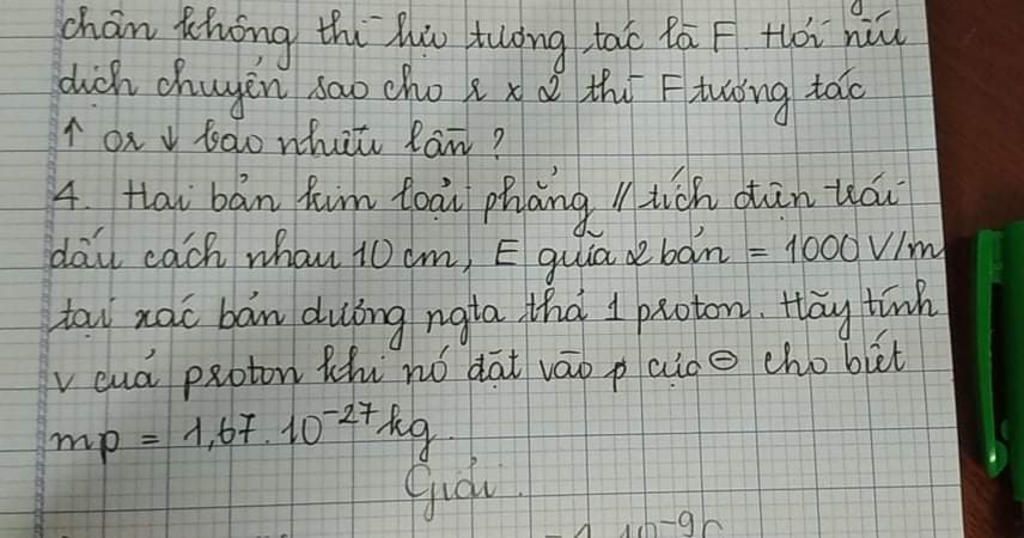 chân không thì lực tương tác là F. Hỏi nếu
dịch chuyển sao cho r x 2 thì F tương tác
↑ or ↓ bao nhiêu lần?
4. Hai bản kim loại phẳng // tích điện trái
dấu cách nhau 10 cm, E giữa 2 bản = 1000 V/m
tại xác bản dương ngta thả 1 proton. Hãy tính
v của proton khi nó đặt vào cực ⊖ cho biết
mp = 1,67.10⁻²⁷ kg.
Giải.